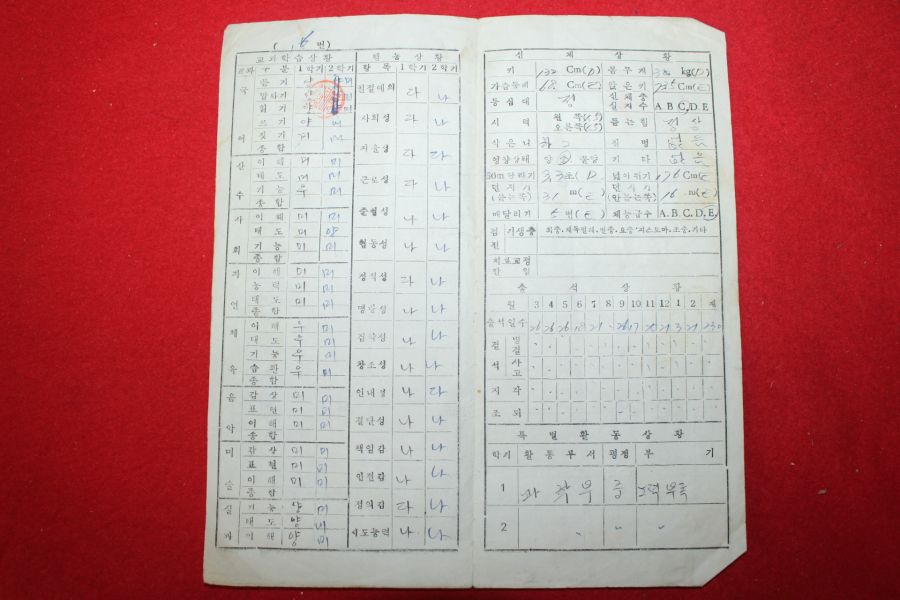 ( 6 번)
교과학습상황
교과 구분 1학기 2학기
국 듣기 양 미
말하기 양
읽기 양 미
쓰기 양 미
어 짓기 미 미
종합
산 이해 미 미
태도 미 미
수 기능 우 미
종합
사 이해 미 미
태도 미 양
회 기능 미 미
종합
자 이해 미 미
능력 미 미
연 태도 미 미
종합
체 이해 우 미
태도 우 미
기능 우 미
육 습관 우 미
종합
음 감상 미 미
표현 미 미
악 이해 미 미
종합
미 감상 미 미
표현 미 미
술 이해 미 미
종합
실 기능 양 미
태도 양 미
과 이해 양 미
행동상황
항목 1학기 2학기
친절예의 다 나
사회성 다 나
자율성 다 다
근로성 다 나
준법성 나 나
협동성 나 나
정직성 다 나
명랑성 나 나
침착성 나 나
창조성 나 나
인내성 나 다
결단성 나 나
책임감 나 나
안전감 나 나
정의감 다 나
지도능력 나 나
신체상황
키 132 Cm(D) 몸무게 kg(D)
가슴둘레 68 Cm(E) 앉은키 Cm(E)
등심대 정 신체충실지수 A B C D E
시력 왼쪽 오른쪽 듣는힘 정상
질병 없음
영양상태 기타 없음
50m달리기 초(D) 넓이뛰기 176 Cm(E)
던지기(옳은쪽) 31 m(E) 던지기(안옳은쪽) 16 m(E)
매달리기 5 번(E) 체능급수 A.B.C.D.E
검진 기생충 회충,
치료교정
출석상황
월 3 4 5 6 7 8 9 10 11 12 1 2 계
출석일수 26 26 26 21 26 21 3 21 230
결석 병결
사고
지각
조퇴
특별활동상황
학기 활동부서 평정 부기
1 과학부 중 노력부족
2 〃 〃 〃